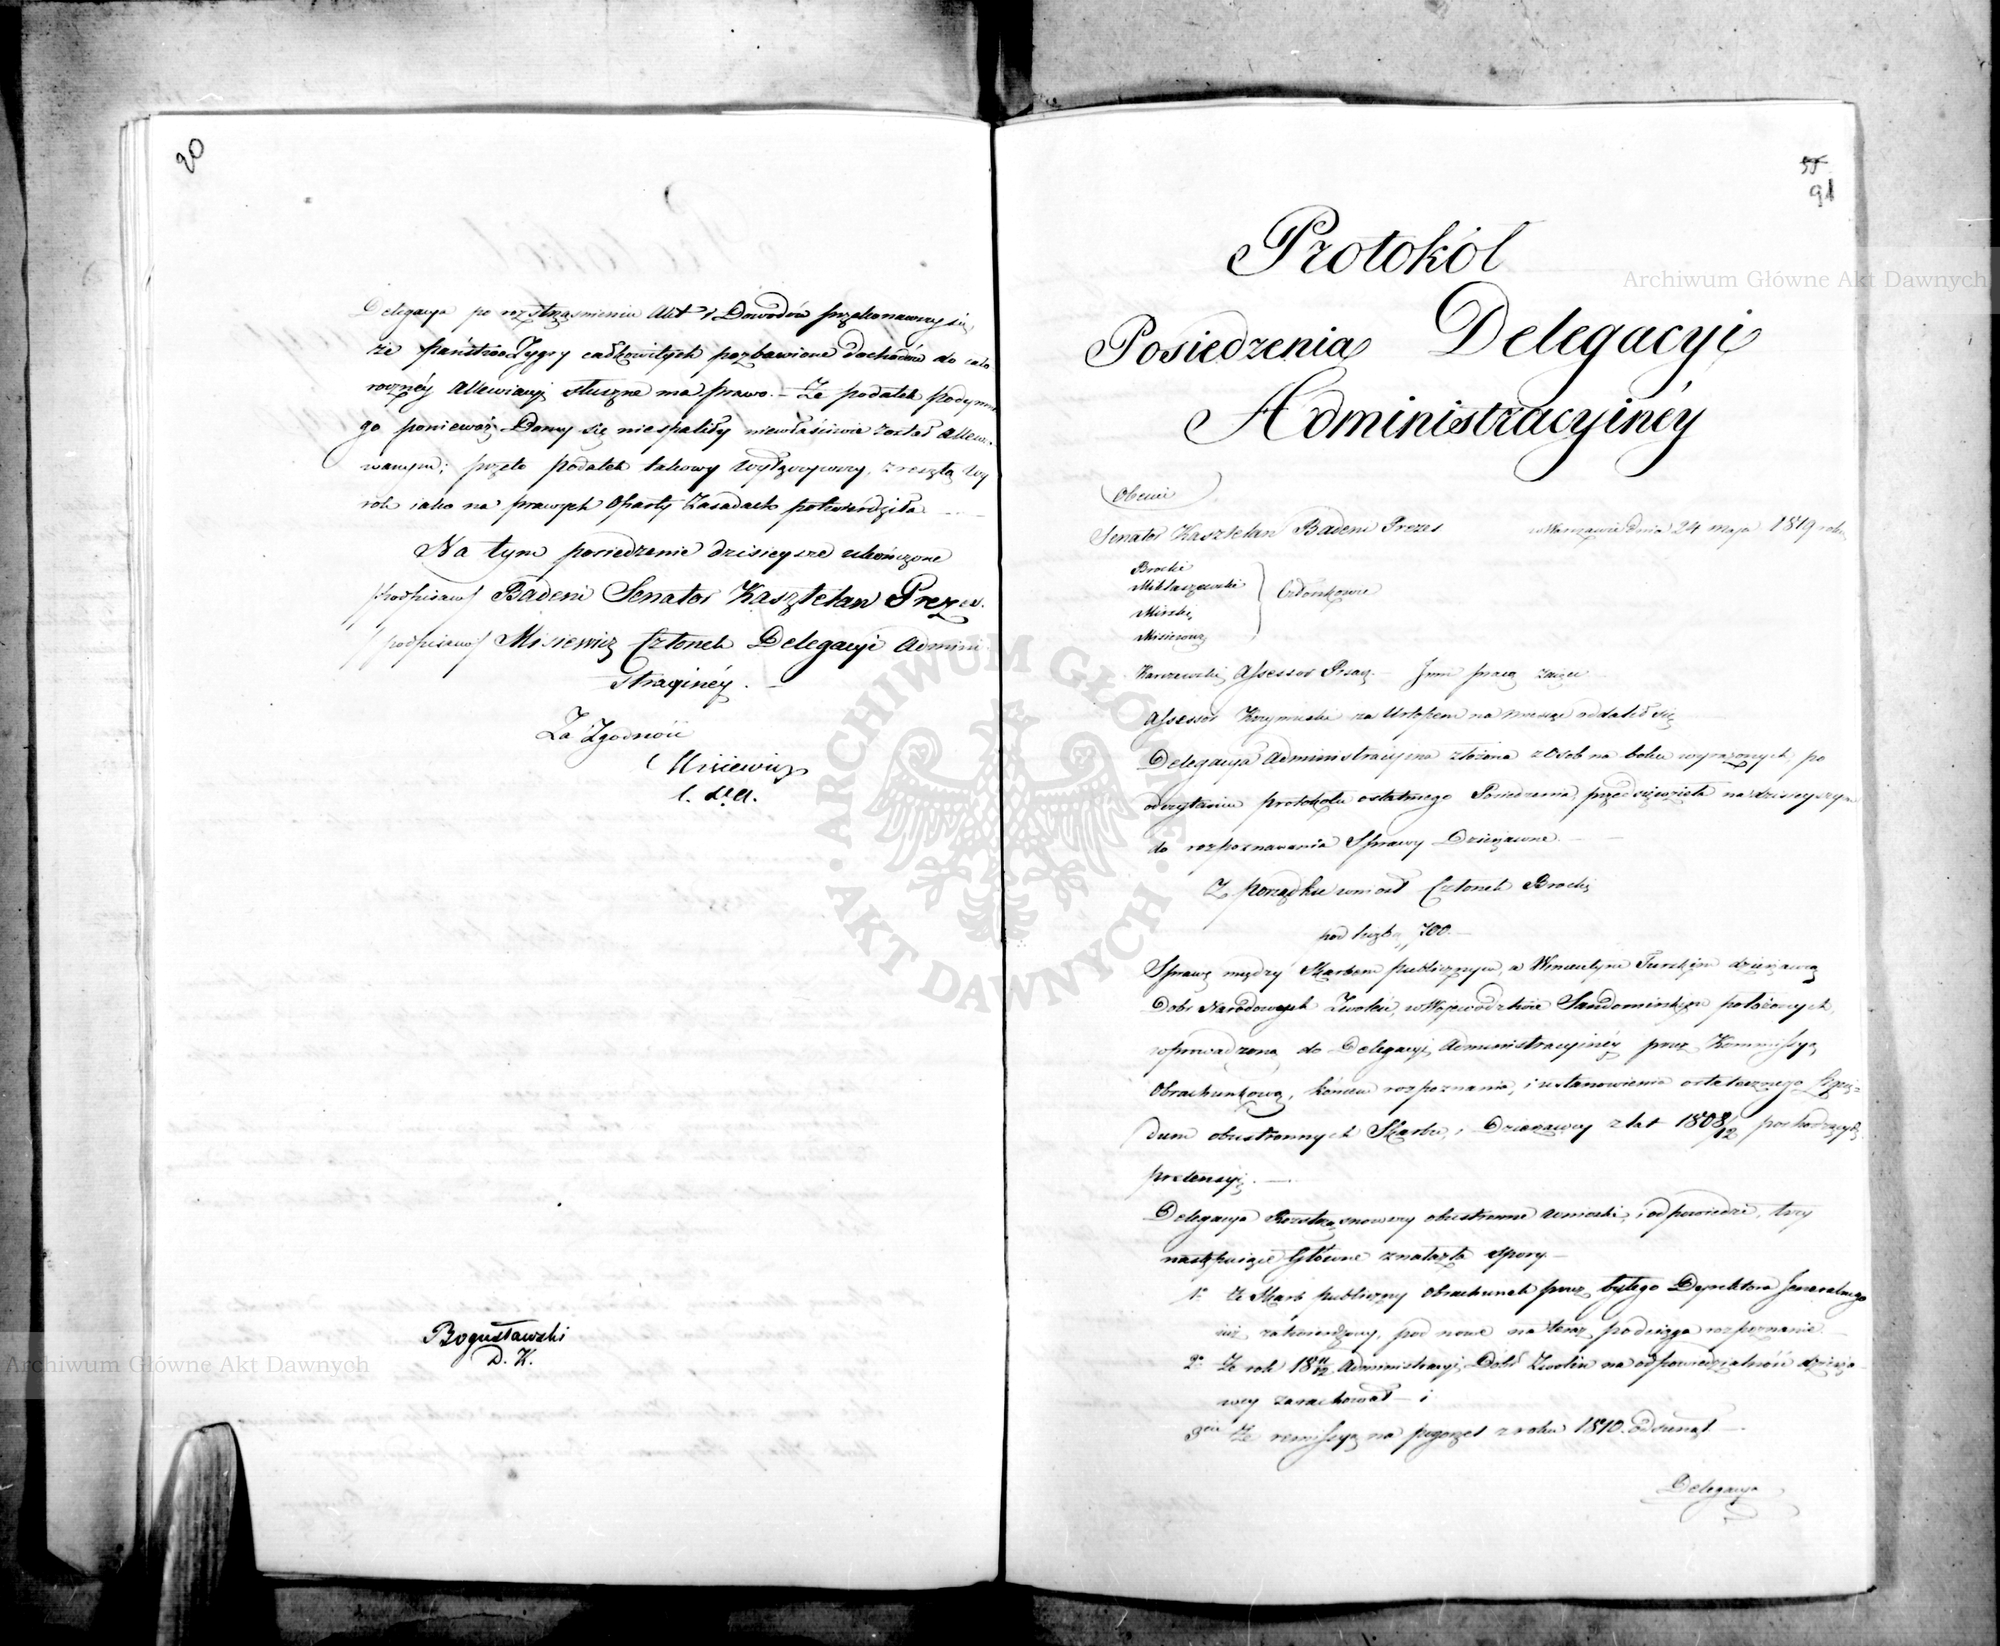 90
Delegacya po roztrząśnieniu Akt i Dowodów przekonawszy się,
że państwo Zygry całkowitych pozbawione dochodów do cało
roczney Allewiacyi słuszne ma prawo. – Że podatek podymne
go ponieważ Domy się niespaliły niewłaściwie został allewio
wanym; przeto podatek takowy wyłączywszy, zresztą wy
rok iako na prawych oparty zasadach potwierdziła
Na tym posiedzenie dzisieysze ukończone
/podpisano/ Badeni Senator Kasztelan Prezes.
/podpisano/ Misiewicz Członek Delegacyi Admini
straciney. –
Za Zgodność
Misiewicz
Bogusławski
D. K.
55
91
Protokół
Posiedzenia Delegacyi
Administracyiney
Obecni
Senator Kasztelan Badeni Prezes w Warszawie dnia 24 maja 1819 roku
Brocki
Miklaszewski
Misiewicz
Członkowie
Karczewski Assessor Inni pracą zaięci
Assessor za Urlopem na miesiąc oddalił się
Delegacya Administracyina złożona z Osób na boku wyrażonych, po
odczytaniu protokołu ostatniego Posiedzenia, przedsięwzięła na dzisieyszym
do rozpoznawania Sprawy Dzierżawne. –
Z porządku wniosł Członek Brocki
pod liczbą 700. –
Sprawę między Skarbem publicznym, a Wincentym Turskim dzierżawcą
Dobr Narodowych Zwoleń, w Wojewodztwie Sandomirskim położonych,
wprowadzoną do Delegacyi Administracyiney przez Kommissyą
Obrachunkową, końcem rozpoznania, i ustanowienia ostatecznego Liqui=
dum obustronnych Skarbu, i Dzierżawcy z lat 1808/12 pochodzących
pretensyi. –
Delegacya Roztrząsnąwszy obustronne wnioski, i odpowiedzi, trzy
następuiące Główne znalazła spory. –
1o Że Skarb publiczny obrachunek przez byłego Dyrektora Jeneralnego
iuż zatwierdzony, pod nowe na teraz podciąga rozpoznanie. –
2o Że rok 18 11/12 Administracyi Dobr Zwolin na odpowiedzialność dzierża
wcy zarachował – i
3cie Że remissyą na pogorzel z roku 1810. odsunął. –
Delegacya
Archiwum Główne Akt Dawnych
Archiwum Główne Akt Dawnych
ARCHIWUM GŁÓWNE AKT DAWNYCH